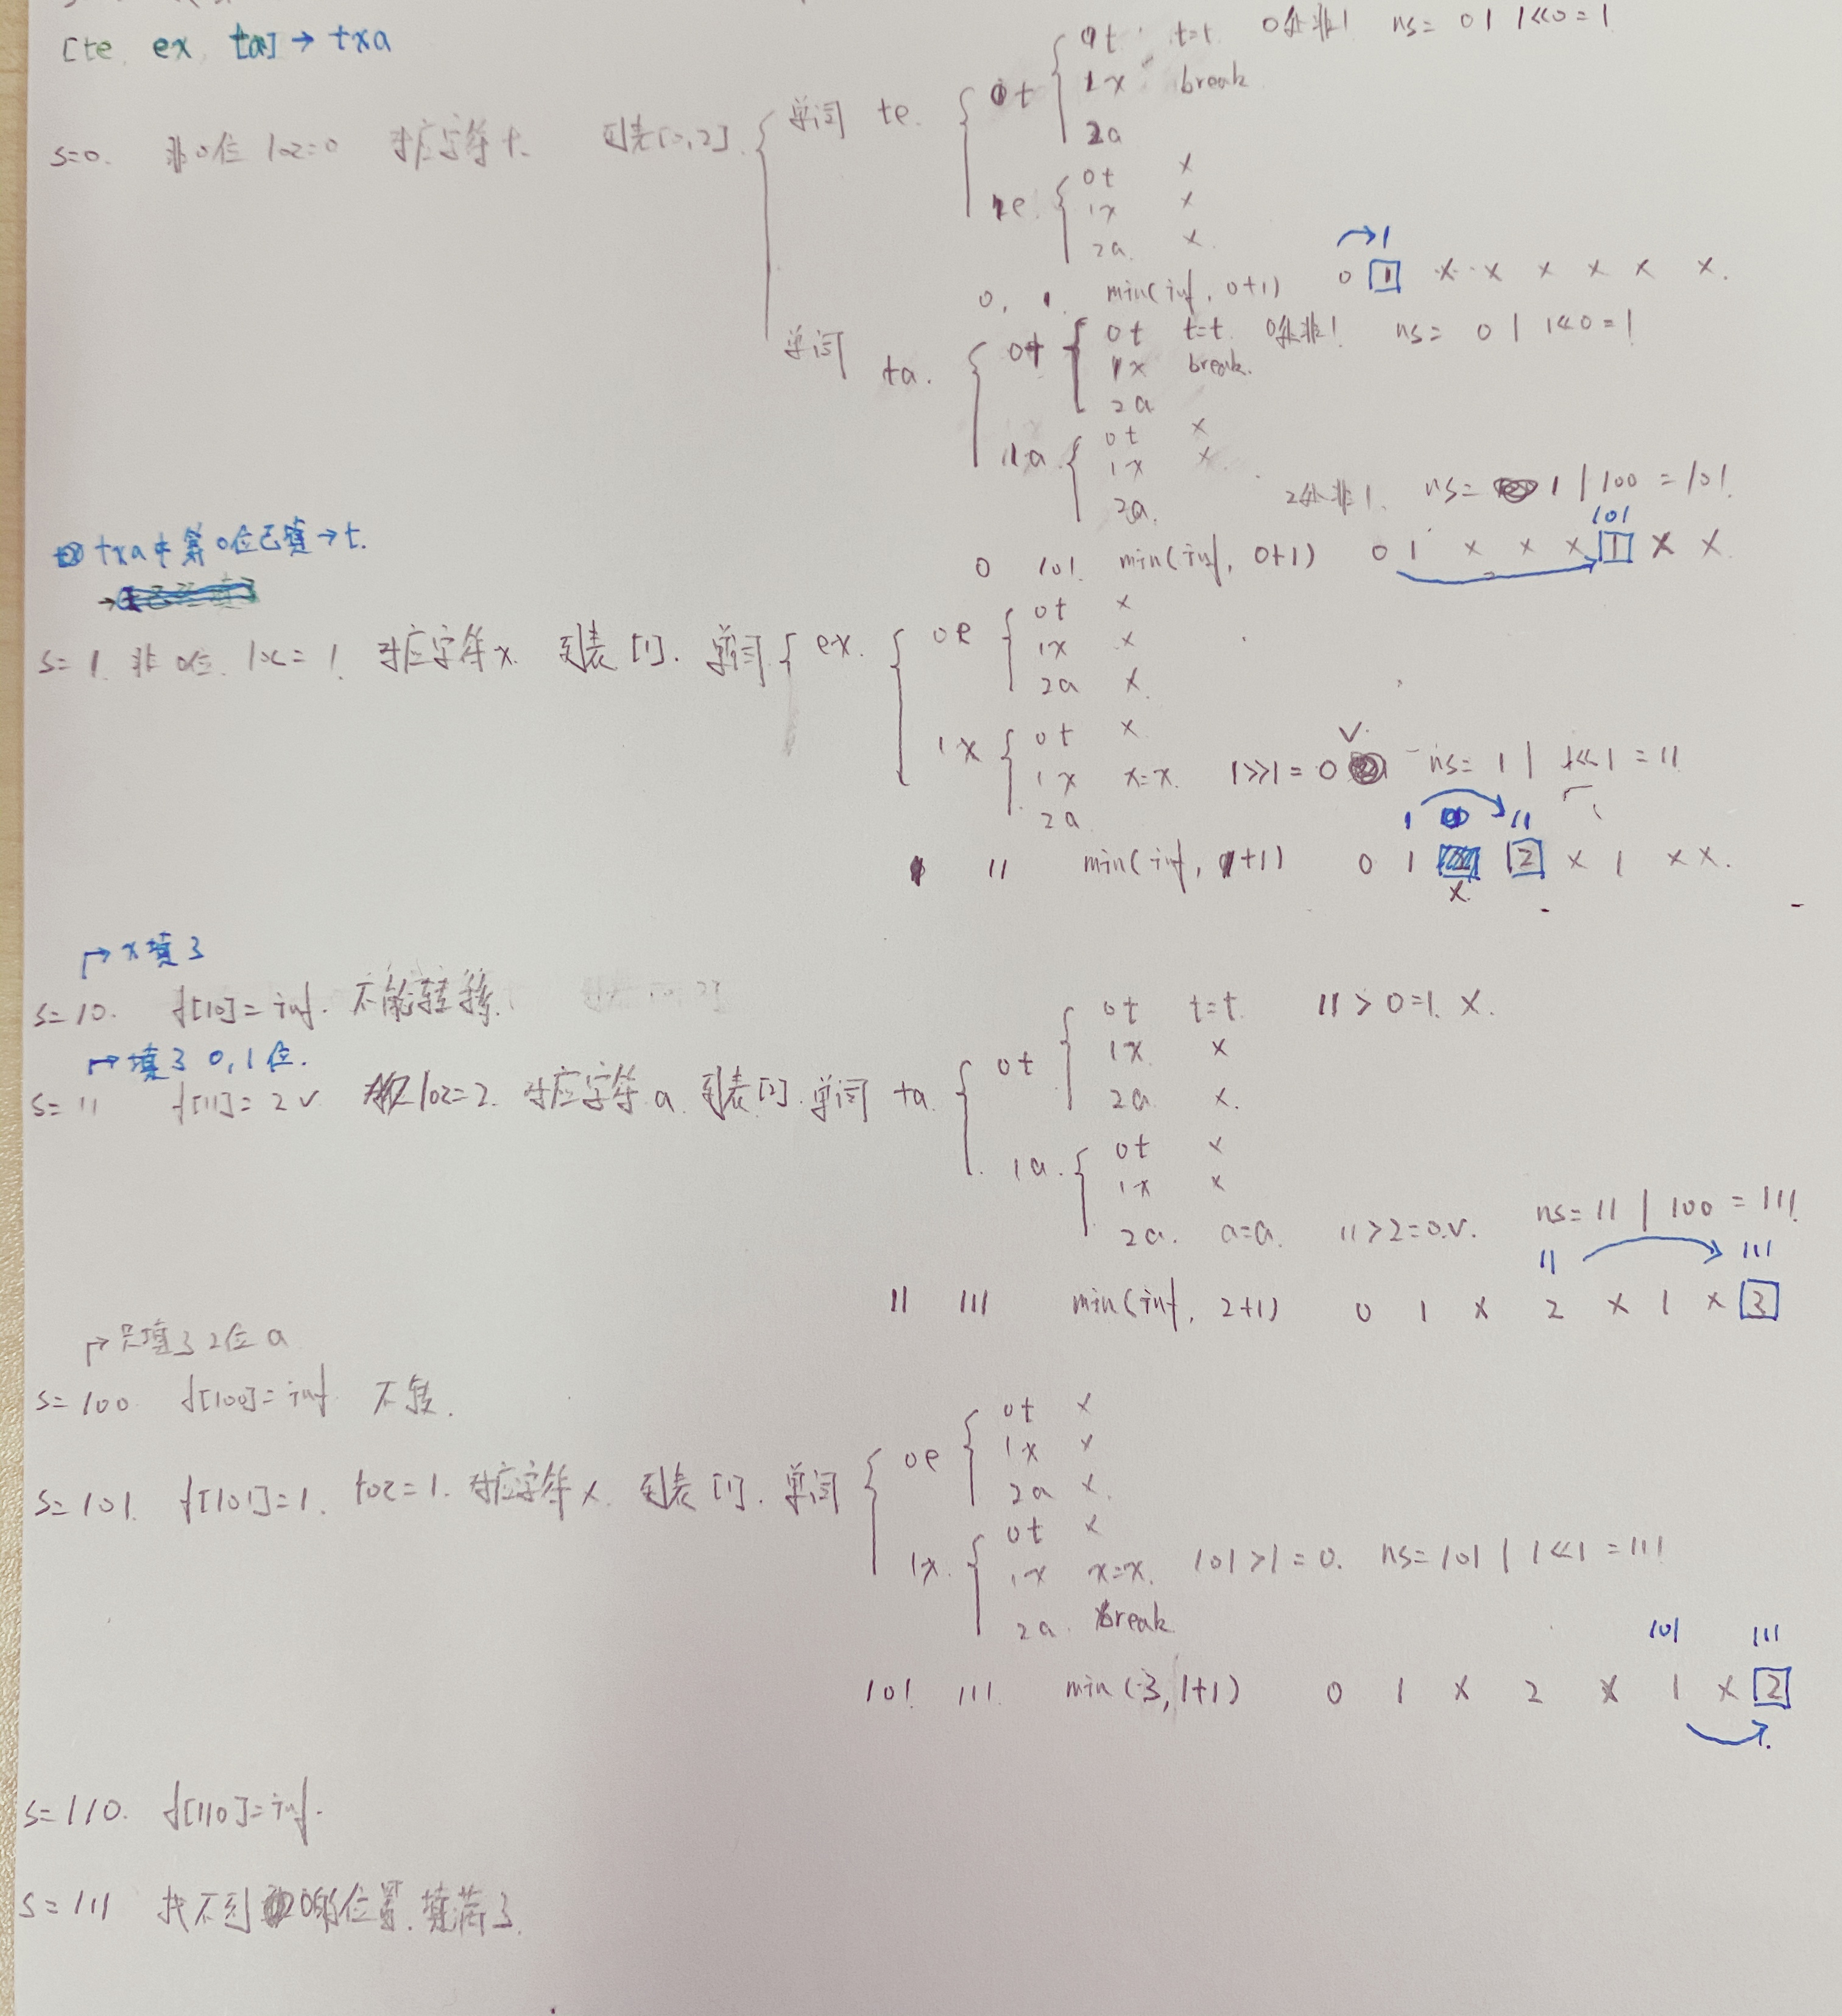 [te ex ta] → txa
0t t=t. 0处非1 ns= 0 | 1<<0 = 1
单词 te. 0t 1x break
2a
s=0. 非0位 loc=0 对应字符t. 列表[0,2]
0t ×
1e. 1x ×
2a. ×
1
0, 1. min(inf, 0+1) 0 1 × × × × × ×.
0t t=t. 0处非1 ns= 0 | 1<<0 = 1
单词 ta. 0t 1x break.
2a
0t ×
1a. 1x ×.
2a. 2处非1. ns= 1 | 100 = 101.
101
txa中第0位已填→t.
0 101. min(inf, 0+1) 0 1 × × × 1 × ×
0t ×
s=1. 非0位. loc=1. 对应字符x. 列表[1]. 单词 ex. 0e 1x ×
2a ×.
0t ×
1x 1x x=x. 1>>1=0 √ ns= 1 | 1<<1 = 11
2a
1 11
11 min(inf, 1+1) 0 1 × 2 × 1 × ×.
→x填了
s=10. f[10]=inf. 不能转移.
0t t=t. 11 > 0=1. ×.
0t 1x. ×
2a ×.
→填了0,1位.
s=11 f[11]=2√ loc=2. 对应字符a. 列表[2]. 单词 ta.
0t ×
1a. 1x ×
2a. a=a. 11>2=0.√. ns= 11 | 100 = 111.
11 111
11 111 min(inf, 2+1) 0 1 × 2 × 1 × 3
→只填了2位a
s=100 f[100]=inf 不转.
0t ×
0e 1x ×
2a ×.
s=101. f[101]=1. loc=1. 对应字符x. 列表[1]. 单词
0t ×
1x. 1x x=x. 101>1=0. ns=101 | 1<<1 = 111
2a. break
101 111
101 111. min(3, 1+1) 0 1 × 2 × 1 × 2
s=110. f[110]=inf.
s=111 找不到0的位置. 填满了.